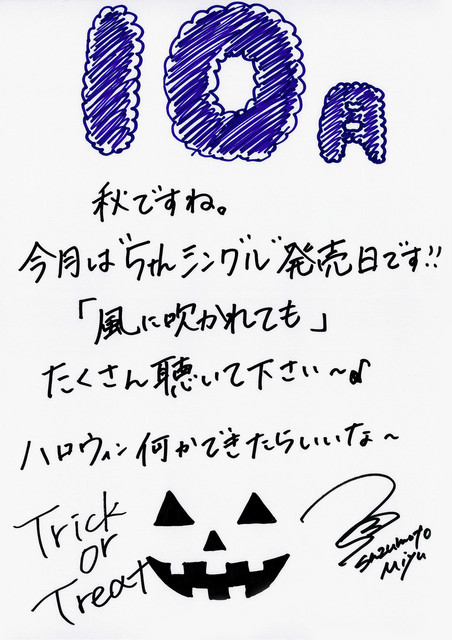 10月
秋ですね。
今月は"5thシングル"発売日です!!
「風に吹かれても」
たくさん聴いて下さい〜♪
ハロウィン何かできたらいいな〜
Trick
or
Treat
Suzumoto
Miyu